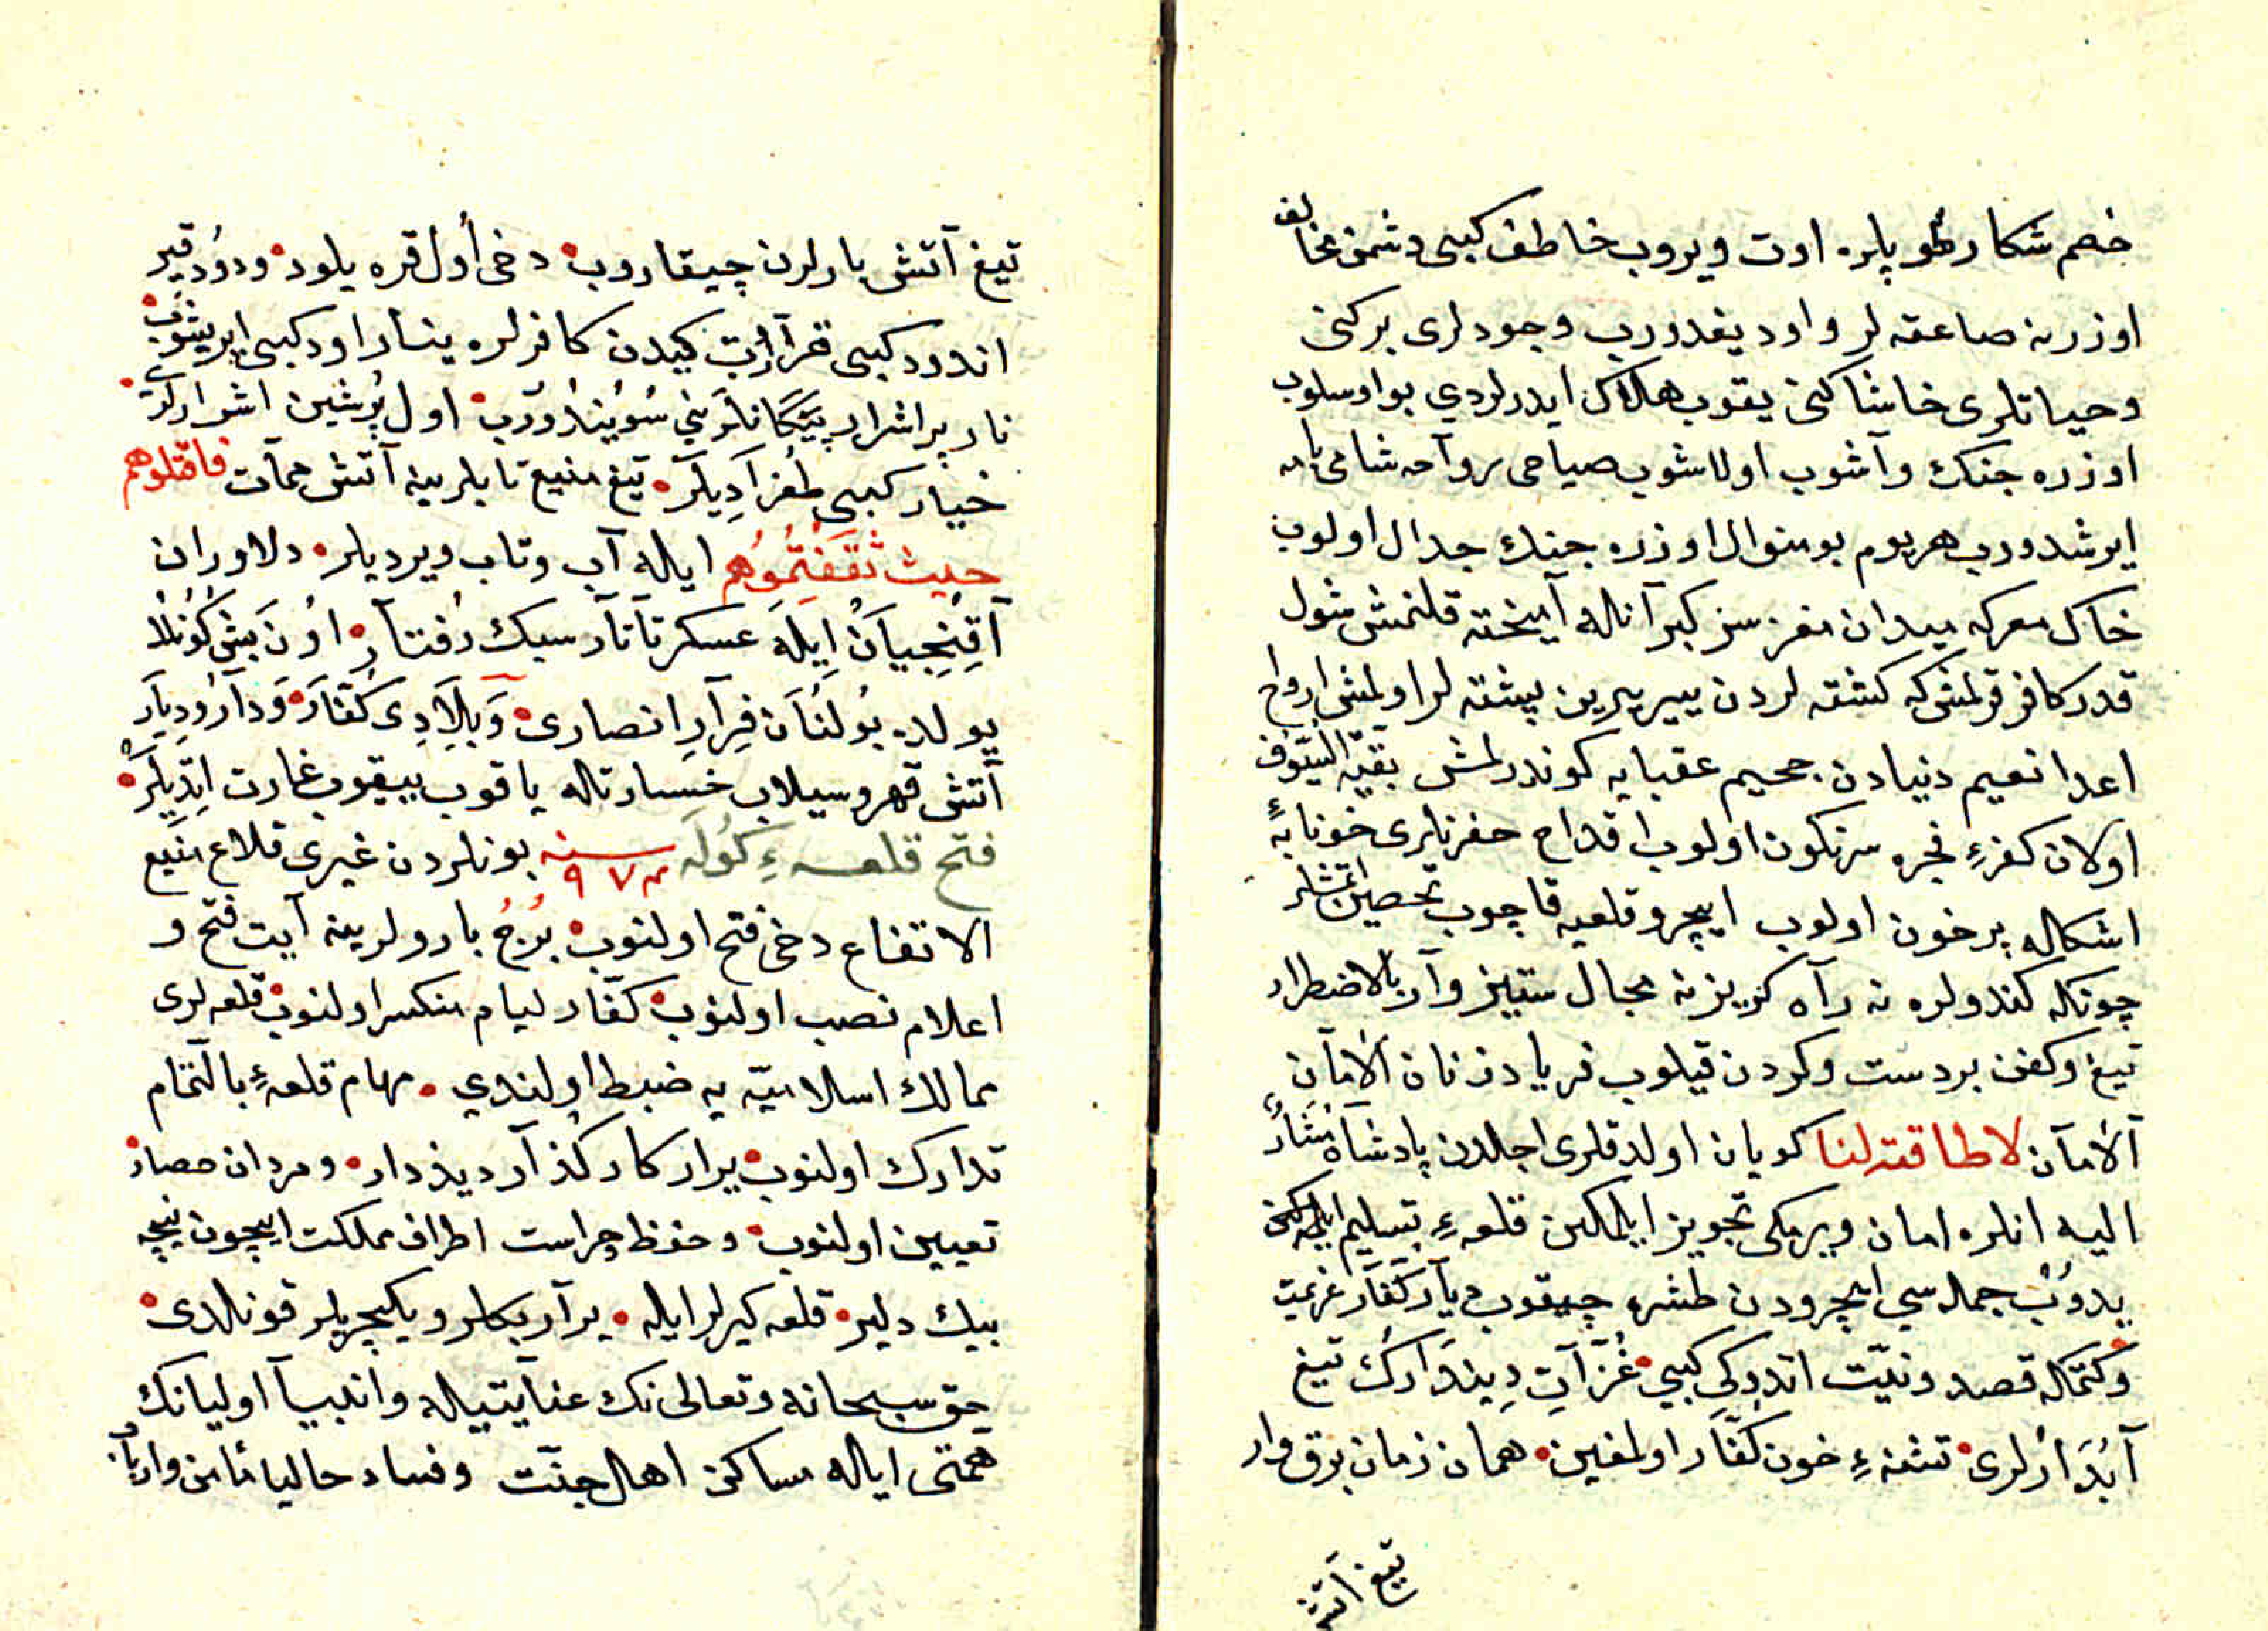 خصم شكار طوپلره اوت ويروب خاطف كبى دشمن مخالف
اوزرنه صاعقه لر واود يغدورب وجودلرى بركنى
وحياتلرى خاشاكنى يقوب هلاك ايدرلردي بو اوسلوب
اوزره جنك وآشوب اولاشوب صباحى رواحه شامى بامه
ايرشدورب هر يوم بو منوال اوزره جنك جدال اولوب
خاك معركه ميدان مغز سر كبرآنله آميخته قلنمش شول
قدر كافر قرلمش كه كشته لردن يير ييرين پشته لر اولمش ارواح
اعدا نعيم دنيادن جحيم عقبايه كوندرلمش بقيّة السّيوف
اولان كفرهٔ فجره سرنكون اولوب اقداح حفرنلرى خونابهٔ
اشكله پرخون اولوب ايچرو قلعيه قاچوب تحصين اتمشلر
چونكه كندولره نه راه كريز نه مجال ستيز وآر بالاضطرار
تيغ وكفن بردست وكردن قيلوب فرياد زنان الامان
الامان لا طاقة لنا كويان اولدقلرى اجلدن پادشاه
اليه انلره امان ويرمكى تجويز ايلمكين قلعهٔ تسليم
يدوب جمله سي ايچرودن طشره چيقوب ديار كفّار عزيمت
وكتمكه قصد ونيّت اتدوكى كبي غزات ديندارك تيغ
آبدارلرى تشنهٔ خون كفّار اولمغين همان زمان برق وار
تيغ آتش
تيغ آتش بارلرن چيقاروب دخى اول قره يلود ودود قير
اندود كبى قرآرب كيدن كافرلره ينار اود كبى ايريشوب
نار پر اشرار پيكانلريني سويندورب اول اشرارلرى
خيار كبى طغراديلر تيغ منيع تابلرينه آتش ممات فاقتلوهم
حيث ثقفتموهم ايله آب وتاب ويرديلر دلاوران
آقنجيان ايله عسكر تاتار سبك رفتار اون بش كونلك
يولده بولنان فرار نصارى وبلاد كفّار ودار وديار
آتش قهر وسيلاب خسارتله ياقوب ييقوب غارت اتديلر
فتح قلعهٔ كوله سنه ٩٧٣ بونلردن غيرى قلاع منيع
الاتفاع دخى فتح اولنوب برج بارولرينه آيت فتح و
اعلام نصب اولنوب كفّار ليام منكسر اولنوب قلعه لرى
ممالك اسلاميّه يه ضبط اولندي مهام قلعهٔ بالتمام
تدارك اولنوب يرار كار كذار ديزدار ومردان حصار
تعيين اولنوب وحفظ حراست اطراف مملكت ايچون نيچه
بيك دلير قلعه كيرلر ايله يرآر بكلر ويكيچريلر قونلدى
حق سبحانه وتعالى نك عنايتيله وانبيا آوليانك
همتى ايله مساكن اهل جنّت وفساد حاليا مأمن وارباب